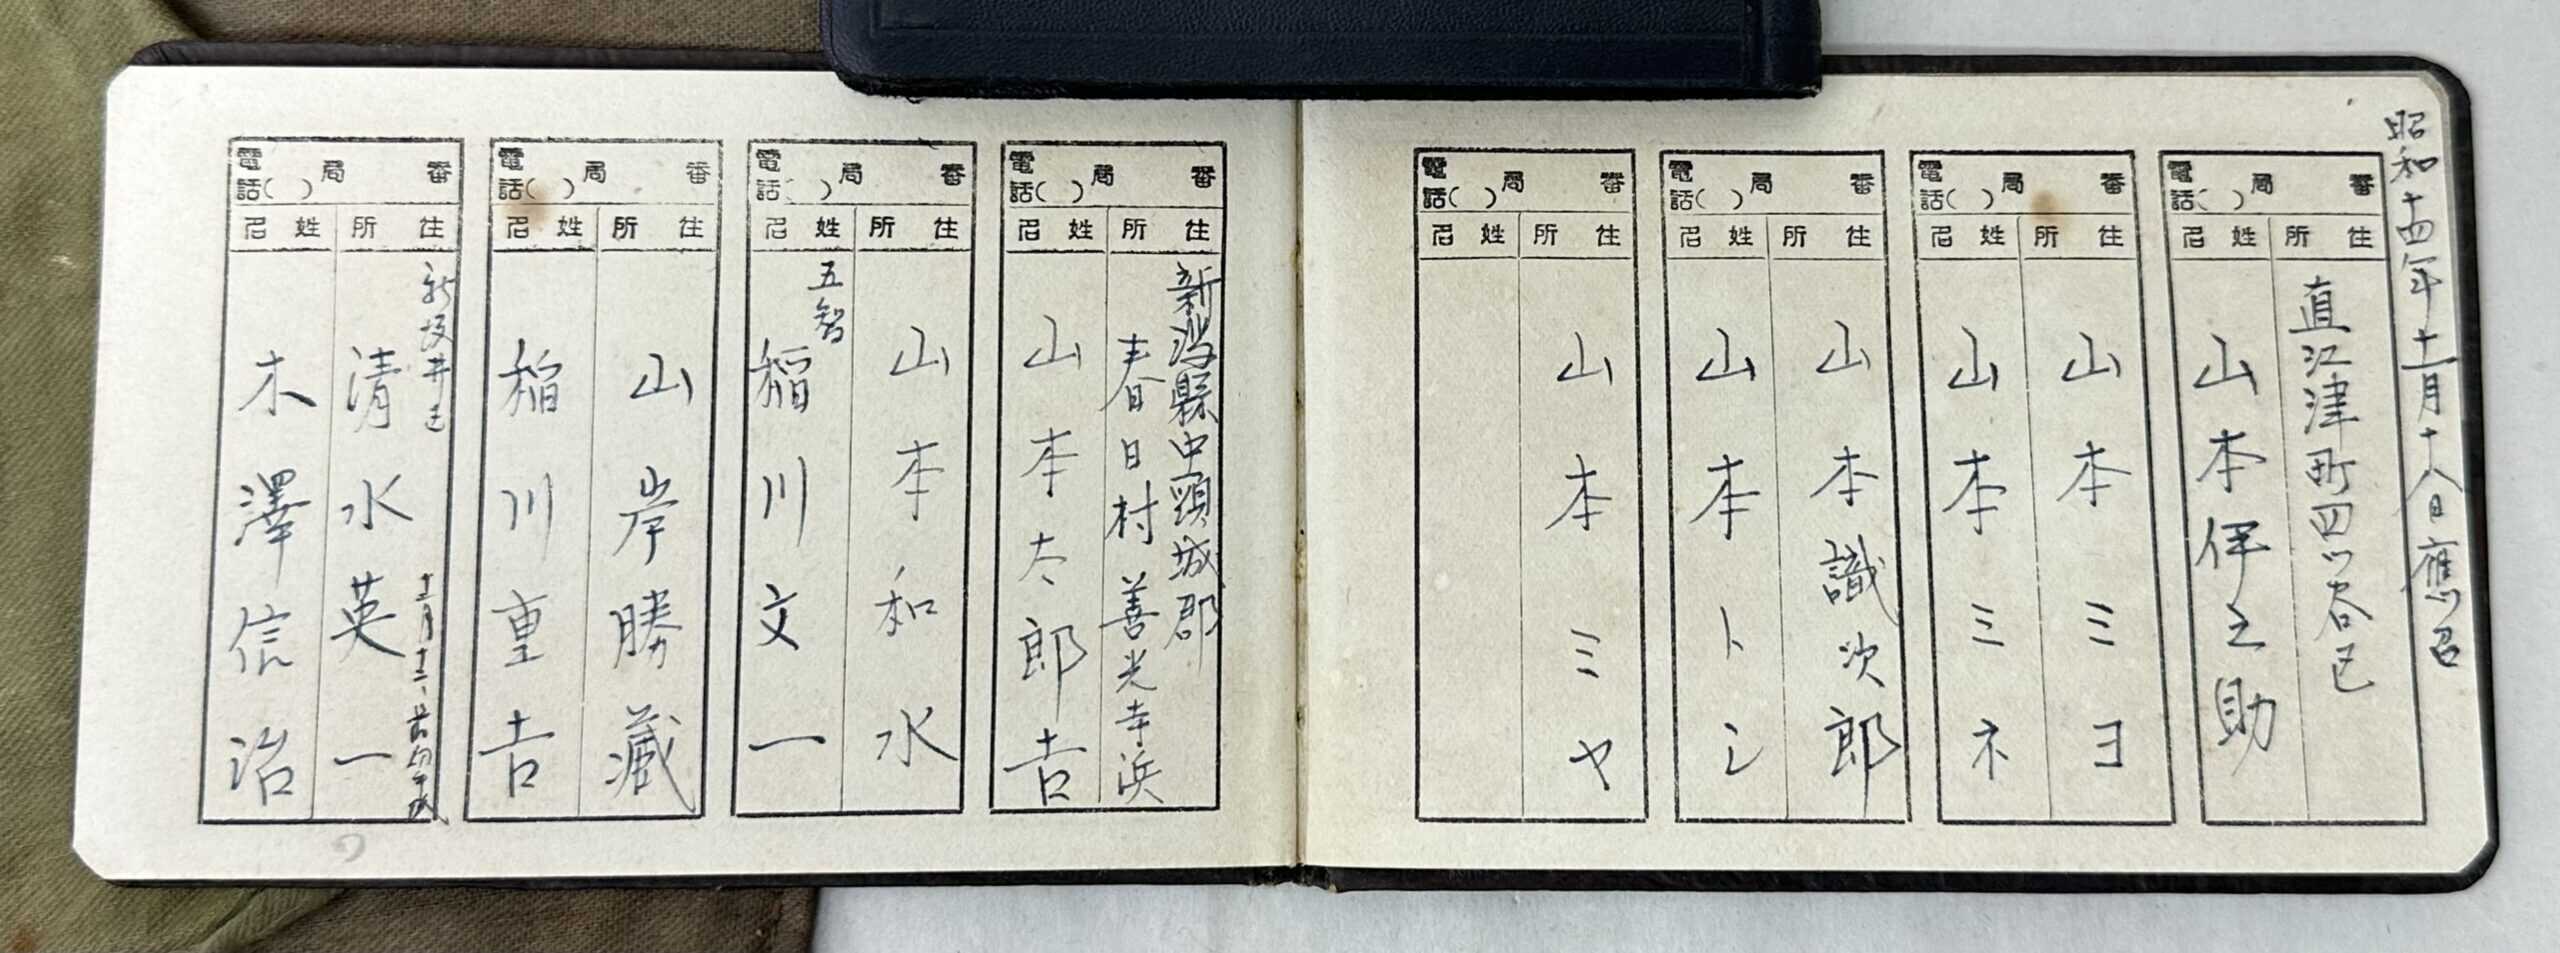 昭和十四年十一月十八日應召
電話( )局 番
住所 姓名
直江津町四ツ谷区
山本伊之助
電話( )局 番
住所 姓名
山本ミヨ
山本ミネ
電話( )局 番
住所 姓名
山本識次郎
山本トシ
電話( )局 番
住所 姓名
山本ミヤ
電話( )局 番
住所 姓名
新潟縣中頸城郡
春日村善光寺浜
山本太郎吉
電話( )局 番
住所 姓名
山本和水
五智
稲川文一
電話( )局 番
住所 姓名
山岸勝藏
稲川重吉
電話( )局 番
住所 姓名
清水英一
木澤信治